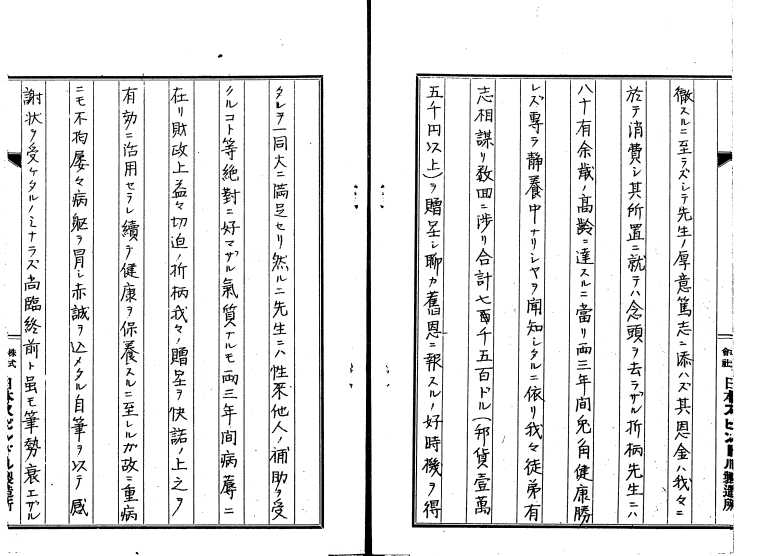 徴スルニ至ラズシテ先生ノ厚意篤志ニ添ハズ其恩金ハ我々ニ
於テ消費シ其所置ニ就テハ念頭ヲ去ラザル折柄先生ニハ
八十有余歳ノ高齢ニ達スルニ當リ両三年間兎角健康勝
レズ専ラ静養中ナリシヤヲ聞知シタルニ依リ我々徒弟有
志相謀リ数回ニ渉リ合計七百千五百ドル(邦貨壹萬
五千円以上)ヲ贈呈シ聊カ舊恩ニ報スルノ好時機ヲ得
タレヲ一同大ニ満足セリ然ルニ先生ニハ性来他人ノ補助ヲ受
クルコト等絶對ニ好マザル氣質ナルモ両三年間病蓐ニ
在リ財政上益々切迫ノ折柄我々ノ贈呈ヲ快諾ノ上之ヲ
有効ニ治用セラレ續テ健康ヲ保養スルニ至レルガ故ニ重病
ニモ不拘屡々病躯ヲ冒シ赤誠ヲ込メタル自筆ヲ以テ感
謝状ヲ受ケタルノミナラズ尚臨終前ト虽モ筆勢衰エザル
株式
会社
日本スピンドル製造所